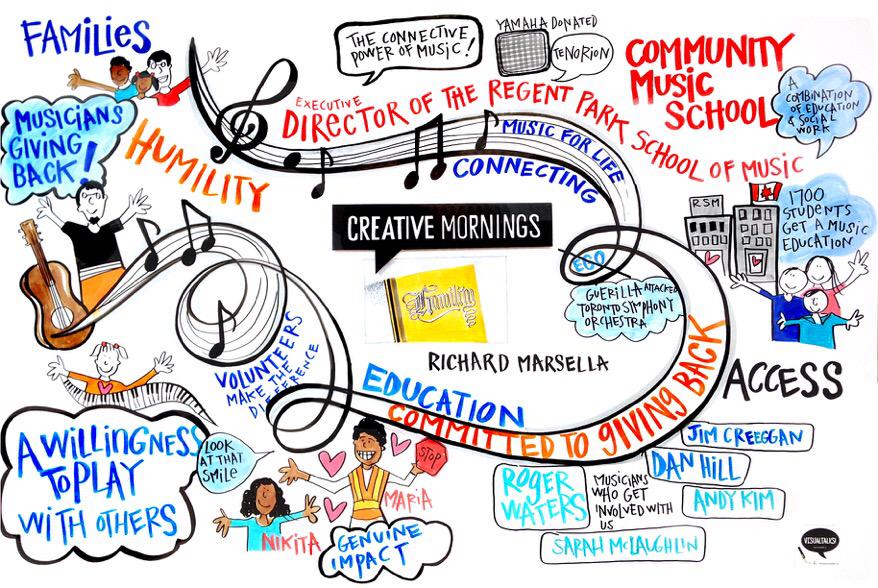 FAMiLiES
THE CONNECTIVE
POWER OF MUSIC!
YAMAHA DONATED
TENORION
COMMUNITY
MUSIC
SCHOOL
A
COMBINATION
OF EDUCATION
& SOCIAL
WORK
MUSICIANS
GIVING
BACK!
HUMILITY
EXECUTIVE
DIRECTOR OF THE REGENT PARK SCHOOL OF MUSIC
MUSIC FOR LIFE
CONNECTING
CREATIVE MORNINGS
Humility
RICHARD MARSELLA
EGO
GUERILLA ATTACKED
TORONTO SYMPHONY
ORCHESTRA
RSM
1700
STUDENTS
GET A MUSIC
EDUCATION
ACCESS
VOLUNTEERS
MAKE THE
DIFFERENCE
EDUCATION
COMMITTED TO GIVING BACK
A WiLLiNGNESS
TO PLAY
WiTH OTHERS
LOOK
AT THAT
SMiLE
STOP
MARiA
NIKITA
GENUINE
IMPACT
JIM CREEGGAN
DAN HILL
ANDY KIM
ROGER
WATERS
MUSICIANS
WHO GET
INVOLVED WITH
US
SARAH McLAUGHLIN
VISUALTALKS!